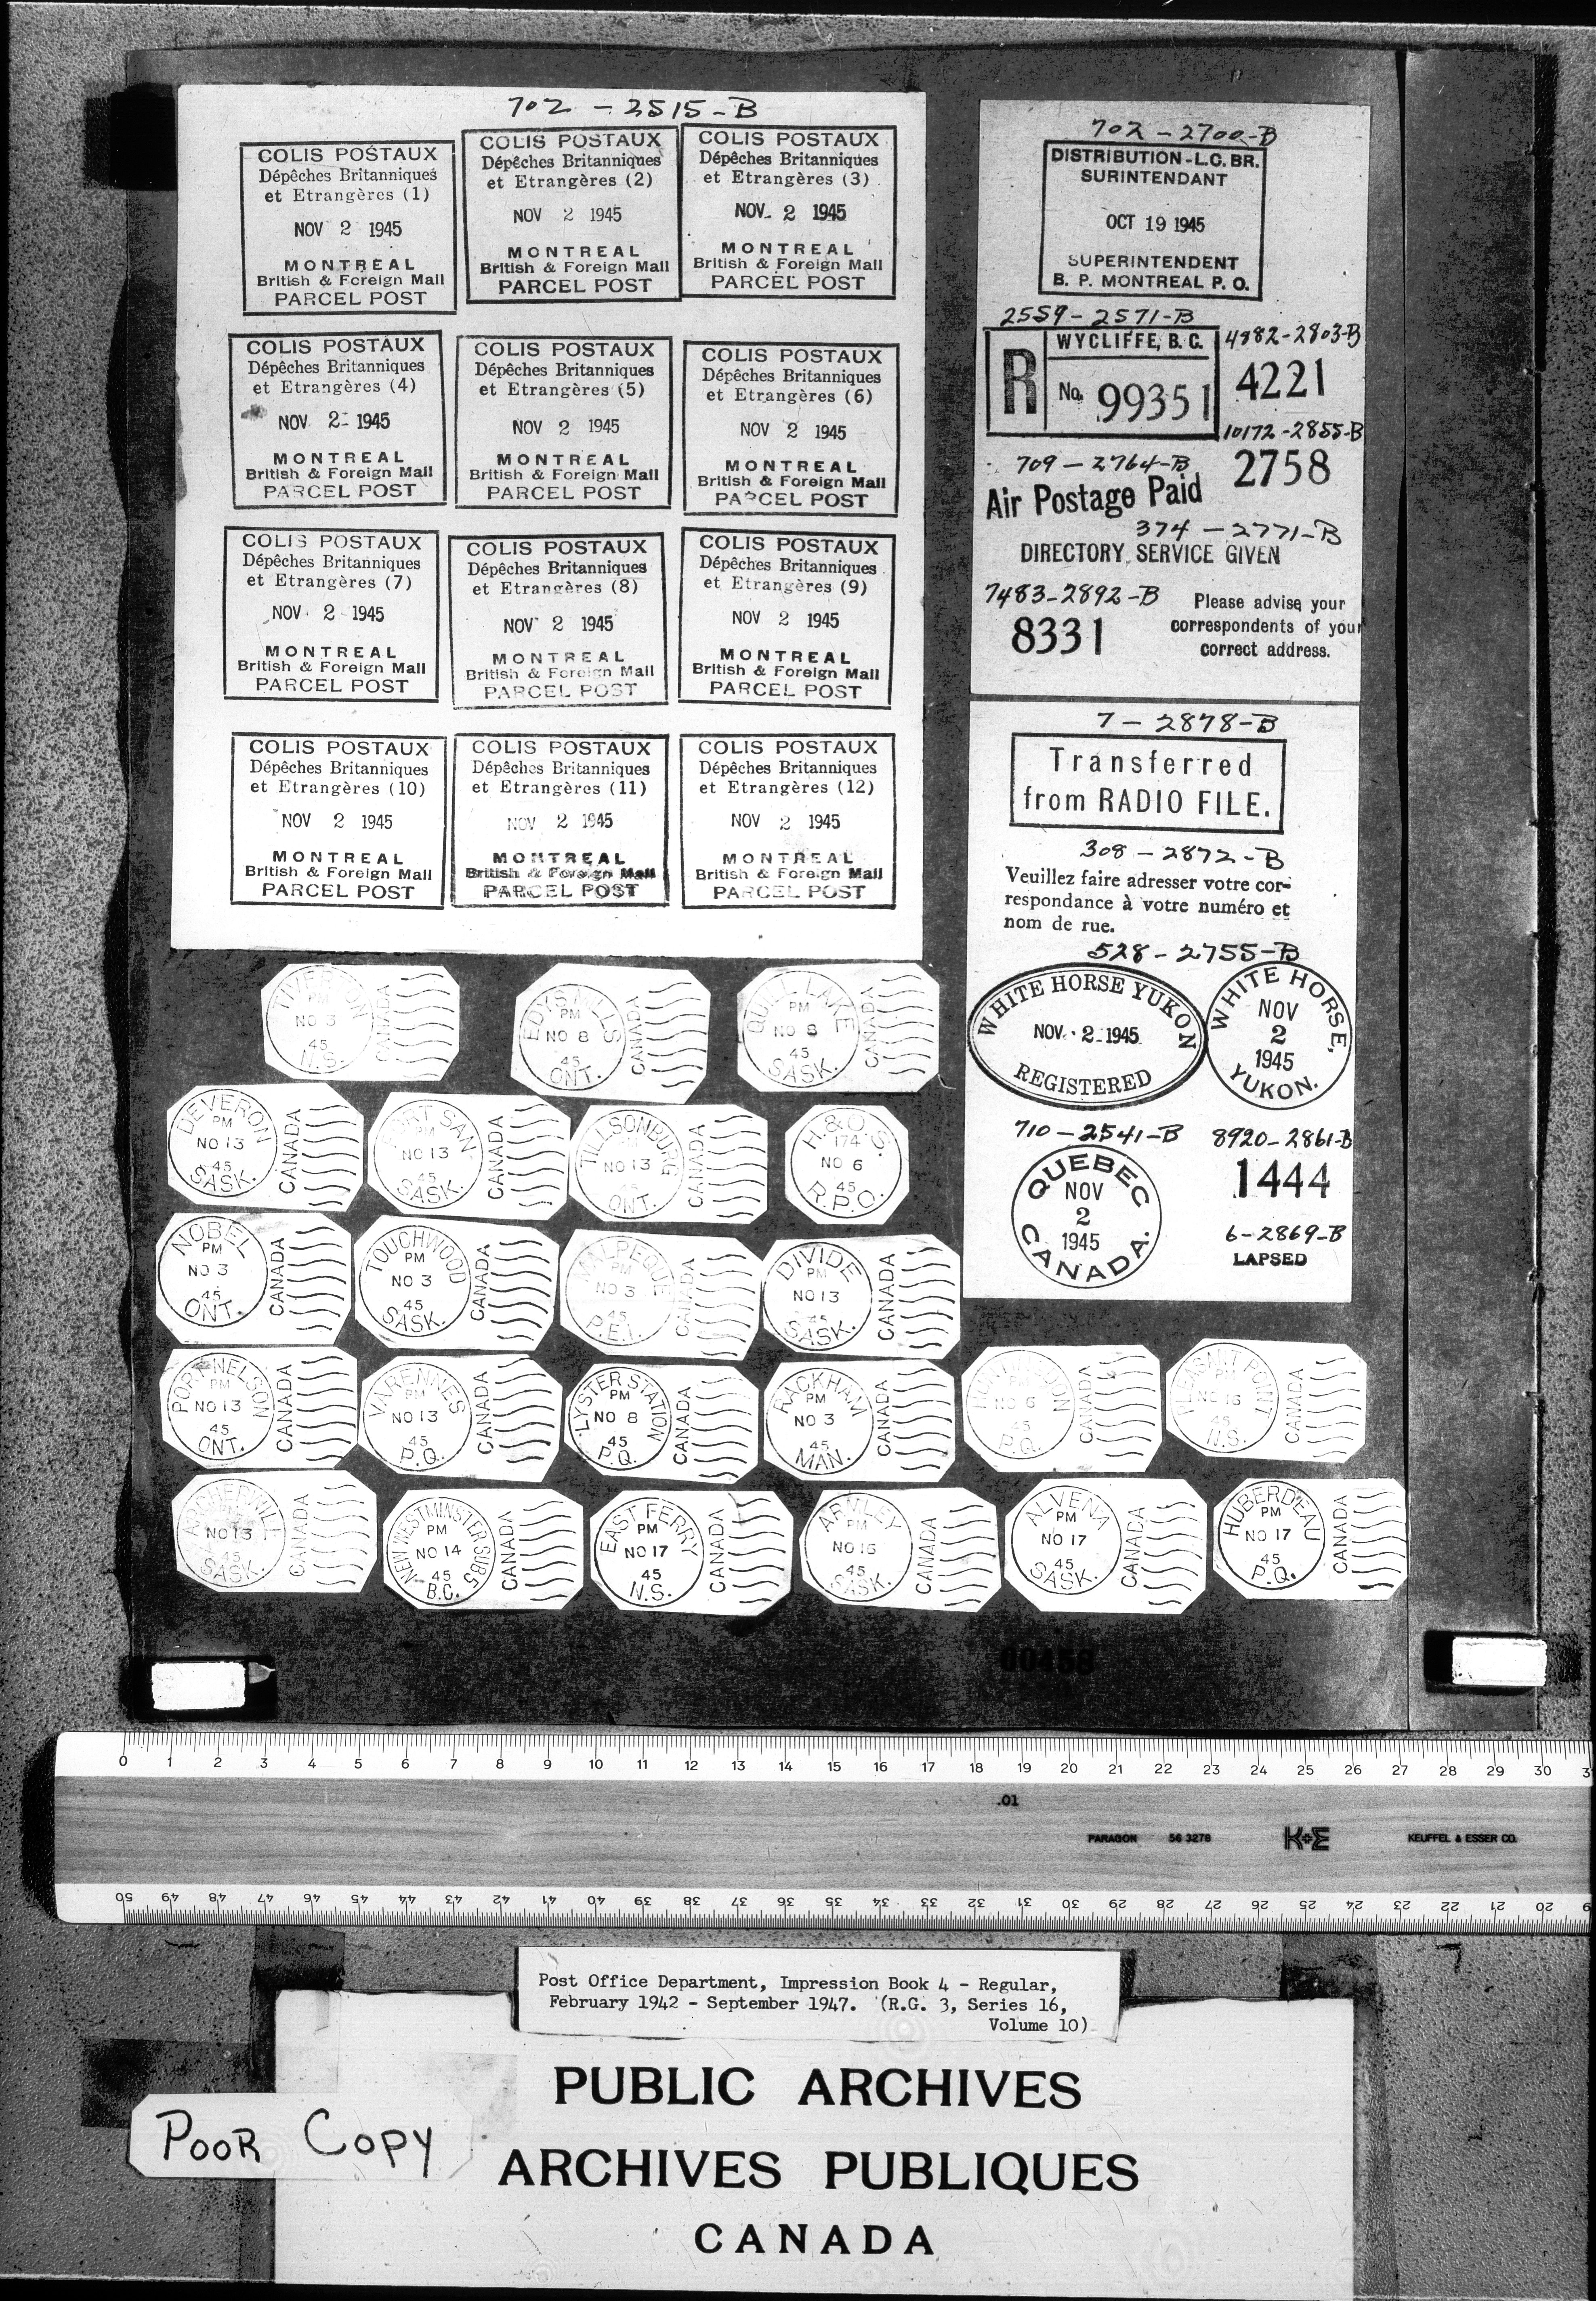 702 - 2515-B
COLIS POSTAUX
Dépêches Britanniques
et Etrangères (1)
NOV 2 1945
MONTREAL
British & Foreign Mail
PARCEL POST
COLIS POSTAUX
Dépêches Britanniques
et Etrangères (2)
NOV 2 1945
MONTREAL
British & Foreign Mail
PARCEL POST
COLIS POSTAUX
Dépêches Britanniques
et Etrangères (3)
NOV 2 1945
MONTREAL
British & Foreign Mail
PARCEL POST
COLIS POSTAUX
Dépêches Britanniques
et Etrangères (4)
NOV 2 1945
MONTREAL
British & Foreign Mail
PARCEL POST
COLIS POSTAUX
Dépêches Britanniques
et Etrangères (5)
NOV 2 1945
MONTREAL
British & Foreign Mail
PARCEL POST
COLIS POSTAUX
Dépêches Britanniques
et Etrangères (6)
NOV 2 1945
MONTREAL
British & Foreign Mail
PARCEL POST
COLIS POSTAUX
Dépêches Britanniques
et Etrangères (7)
NOV 2 1945
MONTREAL
British & Foreign Mail
PARCEL POST
COLIS POSTAUX
Dépêches Britanniques
et Etrangères (8)
NOV 2 1945
MONTREAL
British & Foreign Mail
PARCEL POST
COLIS POSTAUX
Dépêches Britanniques
et Etrangères (9)
NOV 2 1945
MONTREAL
British & Foreign Mail
PARCEL POST
COLIS POSTAUX
Dépêches Britanniques
et Etrangères (10)
NOV 2 1945
MONTREAL
British & Foreign Mail
PARCEL POST
COLIS POSTAUX
Dépêches Britanniques
et Etrangères (11)
NOV 2 1945
MONTREAL
British & Foreign Mail
PARCEL POST
COLIS POSTAUX
Dépêches Britanniques
et Etrangères (12)
NOV 2 1945
MONTREAL
British & Foreign Mail
PARCEL POST
702 - 2700-B
DISTRIBUTION - L.C. BR.
SURINTENDANT
OCT 19 1945
SUPERINTENDENT
B. P. MONTREAL P. O.
2559 - 2571-B
R
WYCLIFFE, B.C.
No. 99351
4982-2803-B
4221
10172-2855-B
2758
709 - 2764-B
Air Postage Paid
374 - 2771-B
DIRECTORY SERVICE GIVEN
7483-2892-B
8331
Please advise your
correspondents of your
correct address.
7 - 2878-B
Transferred
from RADIO FILE.
308 - 2872-B
Veuillez faire adresser votre cor-
respondance à votre numéro et
nom de rue.
528 - 2755-B
WHITE HORSE YUKON
NOV. 2 1945
REGISTERED
WHITE HORSE,
NOV
2
1945
YUKON.
710 - 2541-B
QUEBEC
NOV
2
1945
CANADA.
8920-2861-B
1444
6-2869-B
LAPSED
TIVERTON
PM
NO 3
45
N.S.
CANADA
EDYS MILLS
PM
NO 8
45
ONT.
CANADA
QUILL LAKE
PM
NO 8
45
SASK.
CANADA
DEVERON
PM
NO 13
45
SASK.
CANADA
FORT SAN
PM
NO 13
45
SASK.
CANADA
TILLSONBURG
NO 13
45
ONT.
CANADA
H. & O. S.
174
NO 6
45
R.P.O.
NOBEL
PM
NO 3
45
ONT.
CANADA
TOUCHWOOD
PM
NO 3
45
SASK.
CANADA
MALPEQUE
PM
NO 3
45
P.E.I.
CANADA
DIVIDE
PM
NO 13
45
SASK.
CANADA
PORT NELSON
PM
NO 13
45
ONT.
CANADA
VARENNES
PM
NO 13
45
P.Q.
CANADA
LYSTER STATION
PM
NO 8
45
P.Q.
CANADA
RACKHAM
PM
NO 3
45
MAN.
CANADA
NO 6
P.Q.
CANADA
PLEASANT POINT
PM
45
N.S.
CANADA
ARCHERWILL
NO 13
45
SASK.
CANADA
NEW WESTMINSTER SUB 5
PM
NO 14
45
B.C.
CANADA
EAST FERRY
PM
NO 17
45
N.S.
CANADA
ARMLEY
PM
NO 16
45
SASK.
CANADA
ALVENA
PM
NO 17
45
SASK.
CANADA
HUBERDEAU
PM
NO 17
45
P.Q.
CANADA
00458
0 1 2 3 4 5 6 7 8 9 10 11 12 13 14 15 16 17 18 19 20 21 22 23 24 25 26 27 28 29 30
.01
PARAGON 56 3278 K+E KEUFFEL & ESSER CO.
50 49 48 47 46 45 44 43 42 41 40 39 38 37 36 35 34 33 32 31 30 29 28 27 26 25 24 23 22 21 20
Post Office Department, Impression Book 4 - Regular,
February 1942 - September 1947. (R.G. 3, Series 16,
Volume 10)
PUBLIC ARCHIVES
ARCHIVES PUBLIQUES
CANADA
POOR COPY